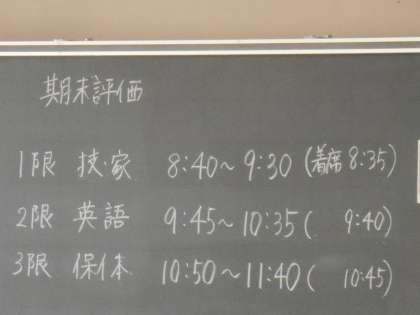 期末評価
1限 技・家 8:40~9:30 (着席 8:35)
2限 英語 9:45~10:35 ( 9:40)
3限 保体 10:50~11:40 ( 10:45)